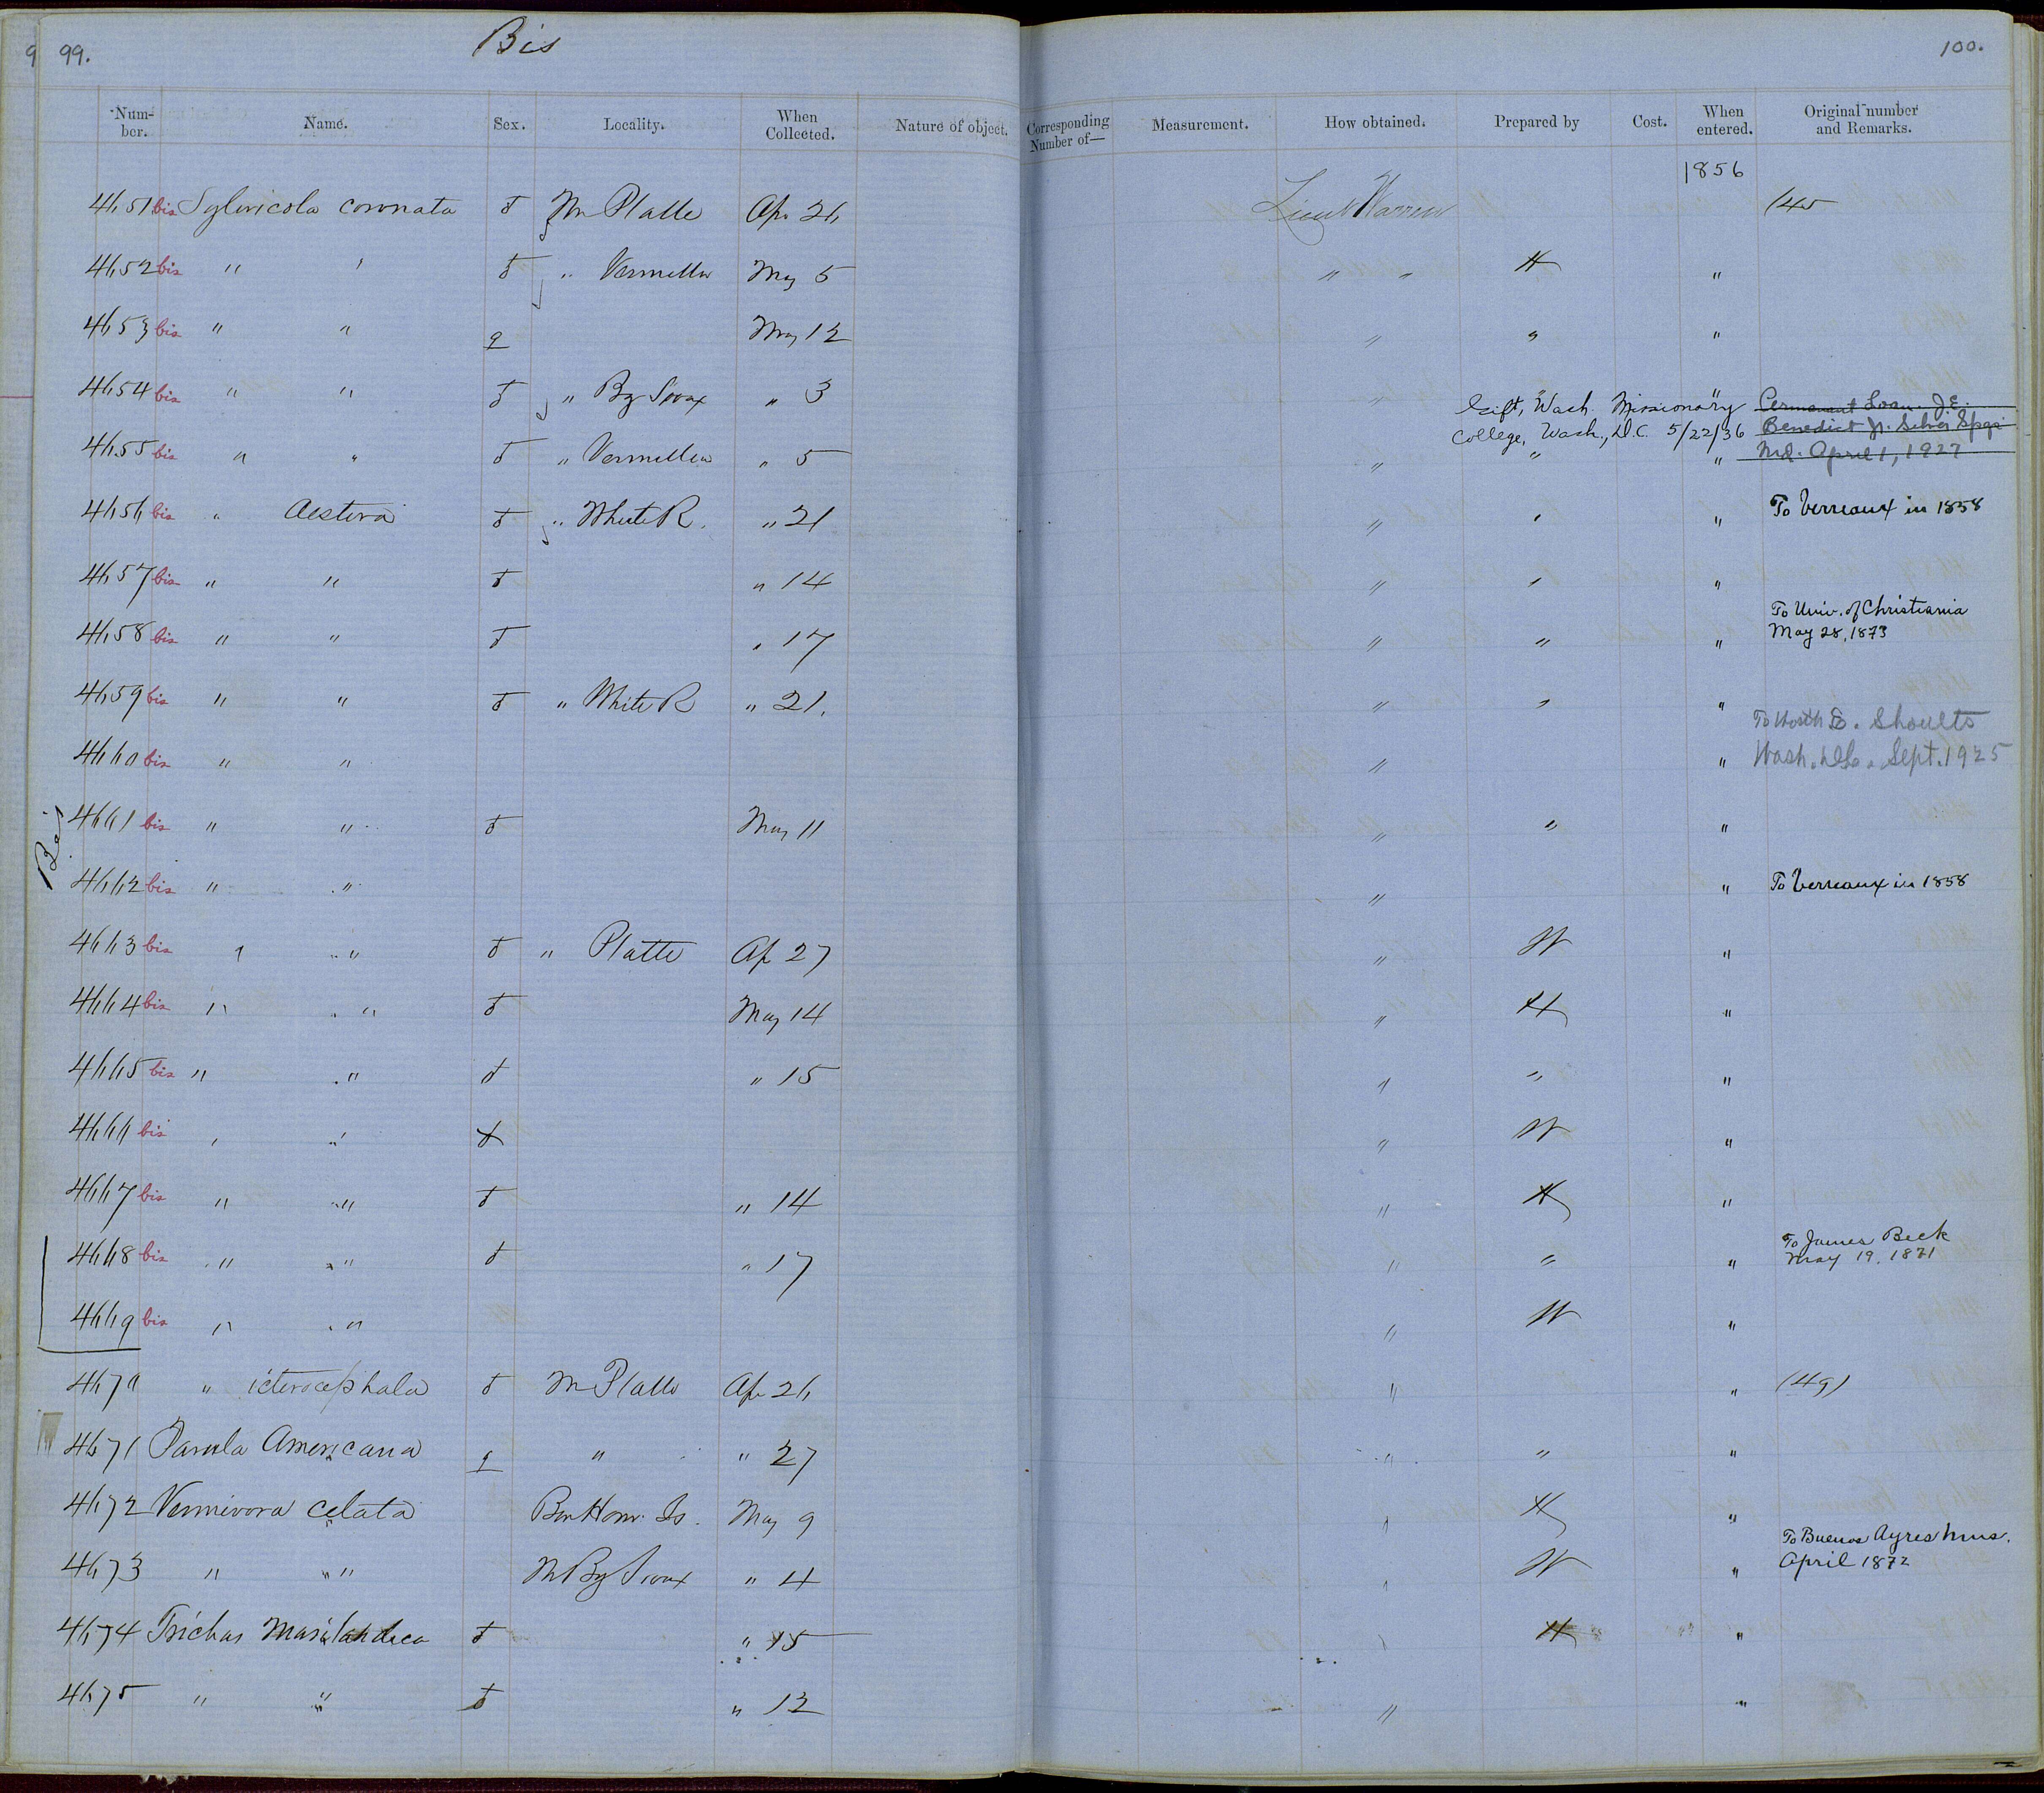 9 99. Bis 100.
Num-ber. Name. Sex. Locality. When Collected. Nature of object. Corresponding Number of— Measurement. How obtained. Prepared by Cost. When entered. Original number and Remarks.
1856
4651 bis Sylvicola coronata ♂ M Platte Ap. 26 Lieut Warren (45
4652 bis " " ♂ " Vermillion May 5 " " H "
4653 bis " " ♀ May 12 " " "
4654 bis " " ♂ " Bg Sioux " 3 " " "
Gift, Wash. Missionary Permanent Loan. J.E.
College, Wash., D.C. 5/22/36 Benedict Jr. Silver Spgs
4655 bis " " ♂ " Vermillion " 5 " " " Md. April 1, 1927
4656 bis " Aestiva ♂ " White R. " 21 " " " To Verreaux in 1858
4657 bis " " ♂ " 14 " " "
To Univ. of Christiania
4658 bis " " ♂ " 17 " " " May 28, 1873
4659 bis " " ♂ " White R " 21. " " "
Shoults
4660 bis " " " " Wash. Sept. 1925
Bis
4661 bis " " ♂ May 11 " " "
4662 bis " " " " To Verreaux in 1858
4663 bis " " ♂ " Platte Ap 27 " W "
4664 bis " " ♂ May 14 " H "
4665 bis " " ♂ " 15 " " "
4666 bis " " " W "
4667 bis " " ♂ " 14 " H "
To James Beck
4668 bis " " ♂ " 17 " " " May 19, 1871
4669 bis " " " W "
4670 " icterocephala ♂ M Platte Ap 26 " " (49)
4671 Parula Americana ♀ " " 27 " " "
4672 Vermivora celata Bon Hom. Is. May 9 " H "
To Buenos Ayres Mus.
4673 " " M Bg Sioux " 4 " W " April 1872
4674 Trichas Marilandica ♂ " 15 " H "
4675 " " ♂ " 12 " "